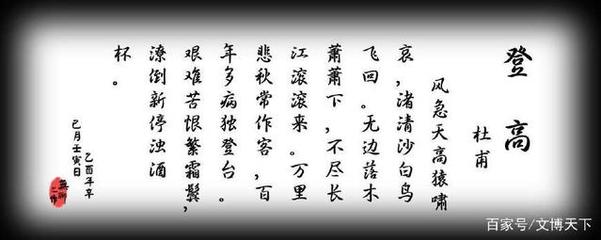 登高
杜甫
风急天高猿啸
哀，渚清沙白鸟
飞回。无边落木
萧萧下，不尽长
江滚滚来。万里
悲秋常作客，百
年多病独登台。
艰难苦恨繁霜鬓，
潦倒新停浊酒
杯。
乙酉年辛
巳月壬寅日
百家号/文博天下